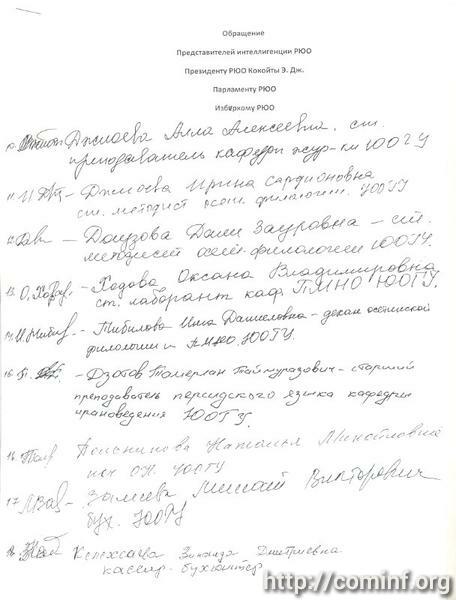 Обращение
Представителей интеллигенции РЮО
Президенту РЮО Кокойты Э. Дж.
Парламенту РЮО
Избиркому РЮО
Джиоева Алла Алексеевна, ст.
преподаватель кафедры жур-ки ЮОГУ
11. – Джиоева Ирина
ст. методист осет. филологии. ЮОГУ
– Даизова Дали Зауровна – ст.
методист осет. филологии ЮОГУ.
13. О. – Ходова Оксана Владимировна
ст. лаборант каф ПМНО ЮОГУ.
14. – Тибилова Инга Данеловна – декан осетинской
филологии и ПМНО ЮОГУ.
– Дзотов Тамерлан Таймуразович – старший
преподаватель персидского языка кафедры
ирановедения ЮОГУ.
16. Наталья
ЮОГУ
17. – Викторович
бух. ЮОГУ
Зинаида Дмитриевна
кассир – бухгалтер
http://cominf.org